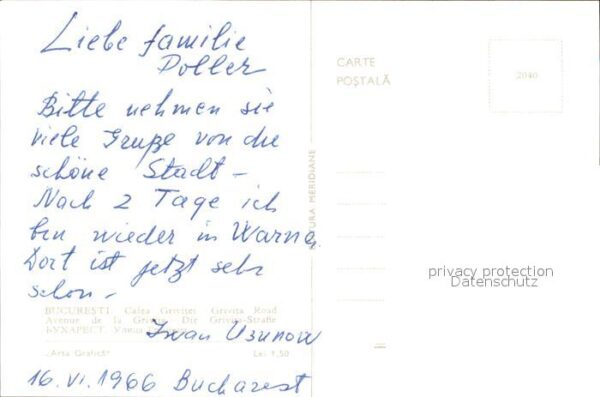 Liebe familie
Poller
Bitte nehmen sie
viele Grupze von die
schöne Stadt -
Nach 2 Tage ich
bin wieder in Warna.
Dort ist jetzt sehr
schon -
BUCUREŞTI. Calea Griviței Grivita Road
Avenue de la Grivitza Die Griviţa-Straße
БУХАРЕСТ.
Iwan Usunow
„Arta Grafică"
Lei 1,50
16.VI.1966 Bucharest
EDITURA MERIDIANE
CARTE
POŞTALĂ
2040
privacy protection
Datenschutz